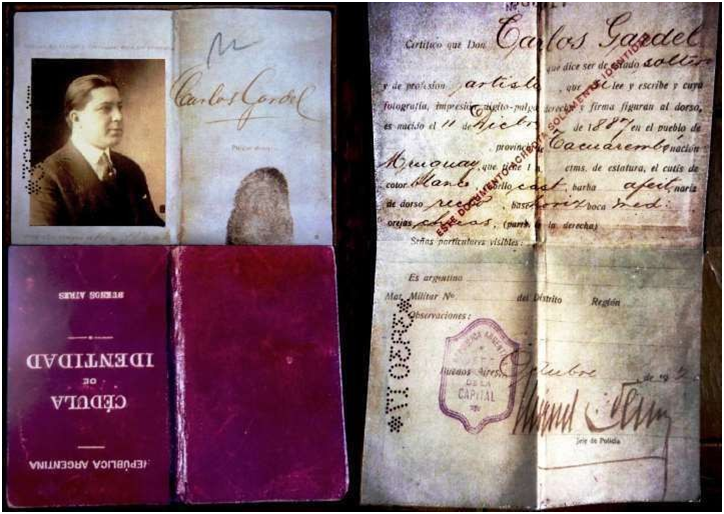 Carlos Gardel
Pulgar derecho
REPÚBLICA ARGENTINA
CÉDULA
DE
IDENTIDAD
BUENOS AIRES
Certifico que Don Carlos Gardel
que dice ser de estado soltero
y de profesión artista, que lee y escribe y cuya
fotografía, impresión dígito-pulgar derecha y firma figuran al dorso,
es nacido el 11 de Dicbre de 1887 en el pueblo de
provincia Tacuarembó nación
Uruguay, que tiene 1 m. ctms. de estatura, el cutis de
color blanco cast. barba afeit. nariz
de dorso recto, base horiz boca med.
orejas (parte la derecha)
Señas particulares visibles:
ESTE DOCUMENTO ACREDITA SOLAMENTE IDENTIDAD
Es argentino
Mat. Militar Nº del Distrito Región
Observaciones:
Buenos Aires, Octubre de 192
CAPITAL
DE LA
Jefe de Policía